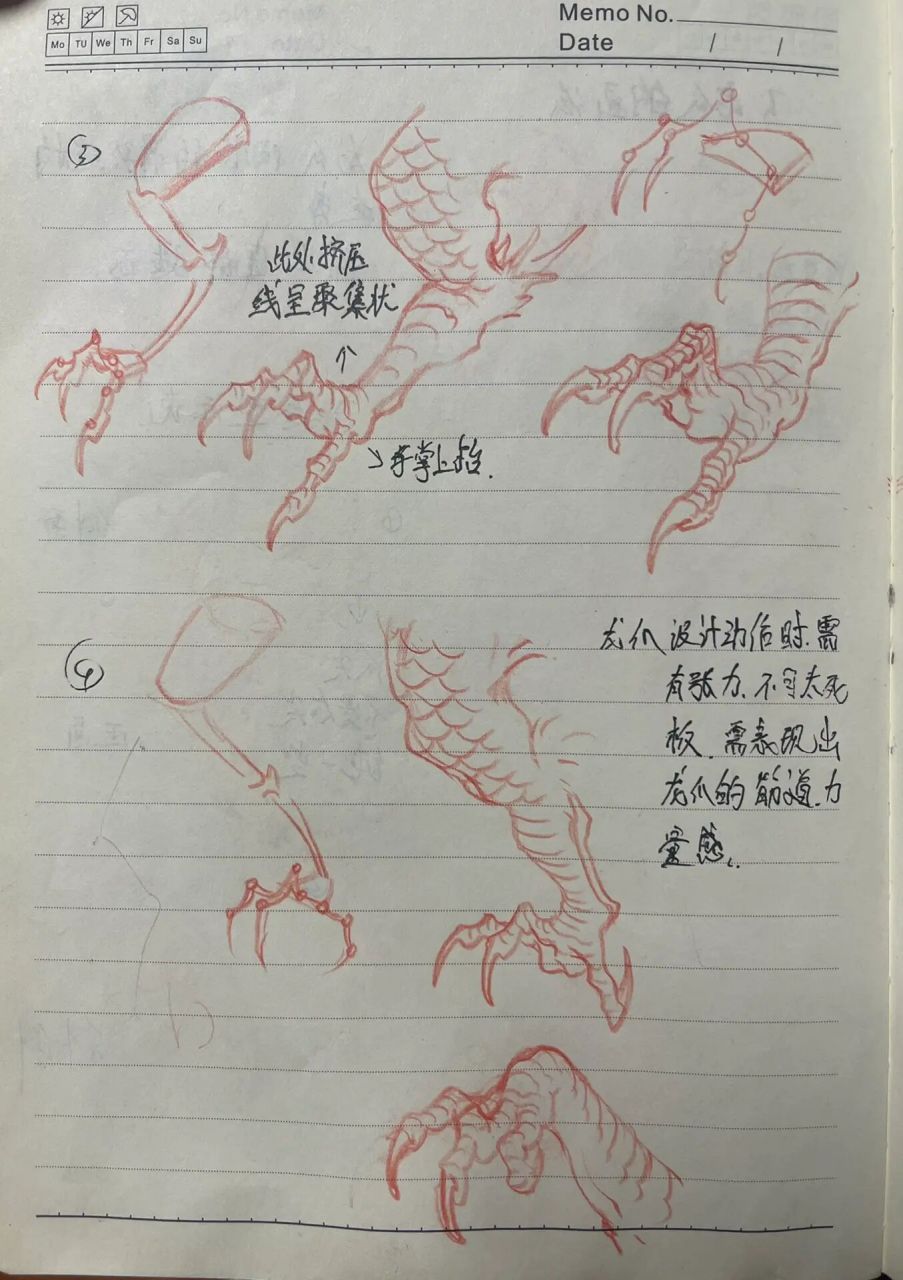 Memo No.
Mo Tu We Th Fr Sa Su
Date / /
③
此处挤压
线呈聚集状
手掌上抬.
④
龙爪设计动作时.需
有张力.不可太死
板.需表现出
龙爪的筋道.力
量感.